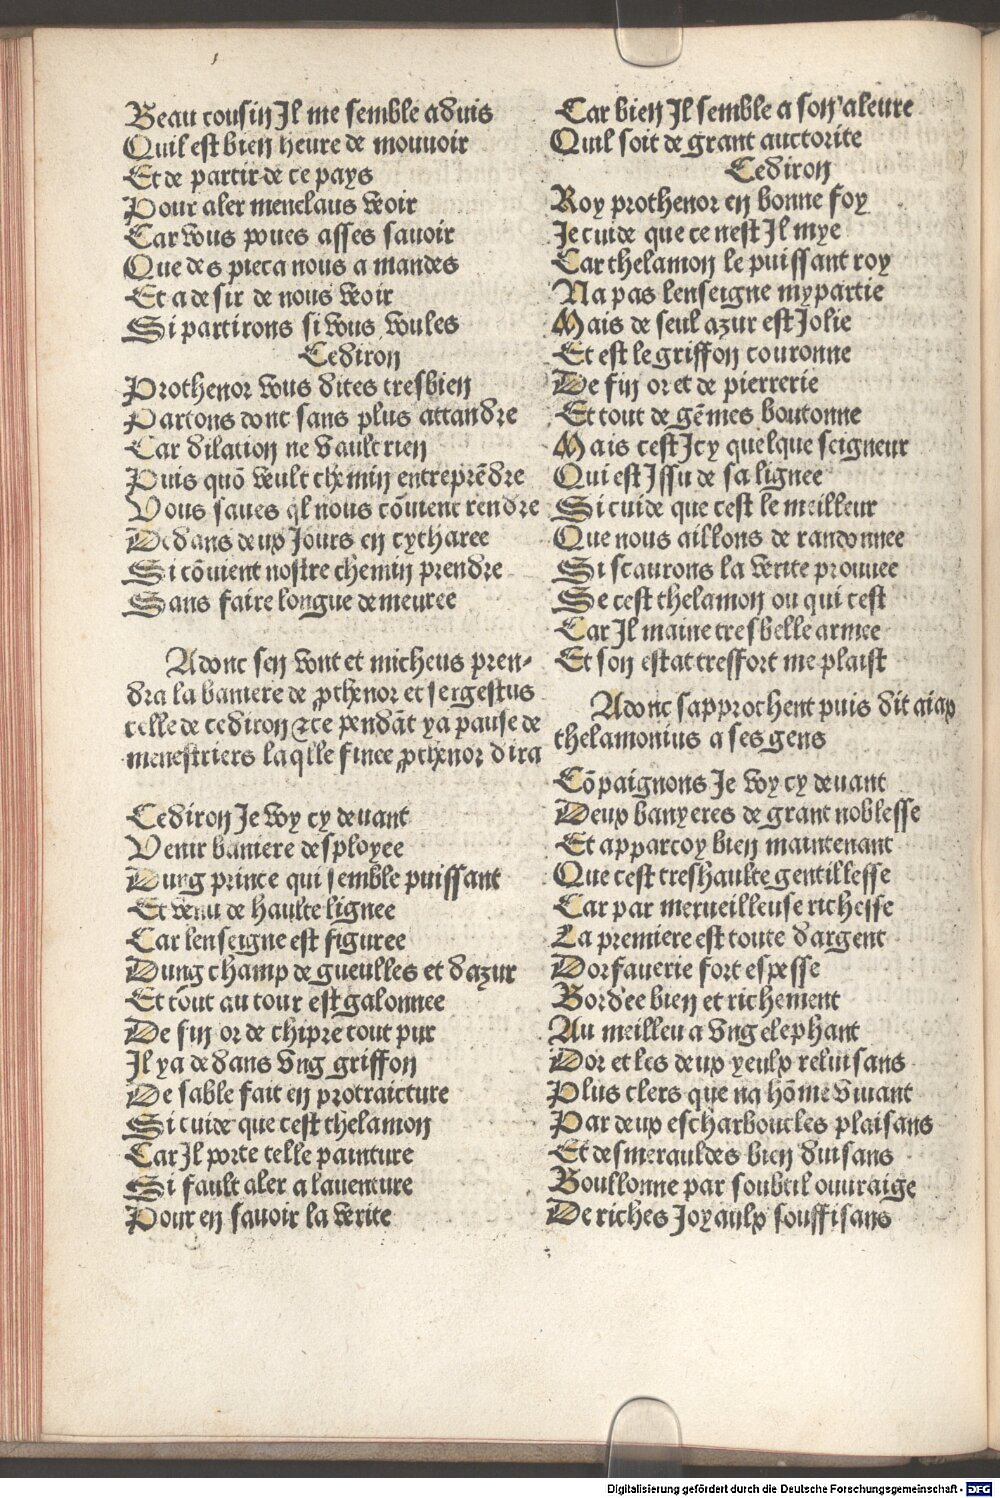 Beau cousin Il me semble aduis
Quil est bien heure de mouuoir
Et de partir de ce pays
Pour aler menelaus veoir
Car vous poues asses sauoir
Que des pieca nous a mandes
Et a desir de nous veoir
Si partirons si vous voules
Cediron
Prothenor vous dites tresbien
Partons donc sans plus attandre
Car dilation ne vault rien
Puis quō veult chemin entreprēdre
Vous saues ql nous cōuient rendre
Dedans deux Jours en cytharee
Si cōuient nostre chemin prendre
Sans faire longue demeuree
Adonc sen vont et micheus pren-
dra la baniere de ꝓthenor et sergestus
celle de cediron ⁊ ce pendāt ya pause de
menestriers laqlle finee ꝓthenor dira
Cediron Je voy cy deuant
Venir baniere desployee
Dung prince qui semble puissant
Et venu de haulte lignee
Car lenseigne est figuree
Dung champ de gueulles et dazur
Et tout au tour est galonnee
De fin or de chipre tout pur
Il ya dedans vng griffon
De sable fait en protraicture
Si cuide que cest thelamon
Car Il porte telle painture
Si fault aler a lauenture
Pour en sauoir la verite
Car bien Il semble a son aleure
Quil soit de grant auctorite
Cediron
Roy prothenor en bonne foy
Je cuide que ce nest Il mye
Car thelamon le puissant roy
Na pas lenseigne mypartie
Mais de seul azur est Jolie
Et est le griffon couronne
De fin or et de pierrerie
Et tout de gēmes boutonne
Mais cest Icy quelque seigneur
Qui est Issu de sa lignee
Si cuide que cest le meilleur
Que nous aillons de randonnee
Si scaurons la verite prouuee
Se cest thelamon ou qui cest
Car Il maine tresbelle armee
Et son estat tresfort me plaist
Adonc sapprochent puis dit aiax
thelamonius a ses gens
Cōpaignons Je voy cy deuant
Deux banyeres de grant noblesse
Et apparcoy bien maintenant
Que cest treshaulte gentillesse
Car par merueilleuse richesse
La premiere est toute dargent
Dorfauerie fort espesse
Bordee bien et richement
Au meilleu a vng elephant
Dor et les deux yeulx reluisans
Plus clers que na hōme viuant
Par deux escharboucles plaisans
Et desmerauldes bien duisans
Boullonne par soubtil ouuraige
De riches Joyaulx souffisans
Digitalisierung gefördert durch die Deutsche Forschungsgemeinschaft - DFG